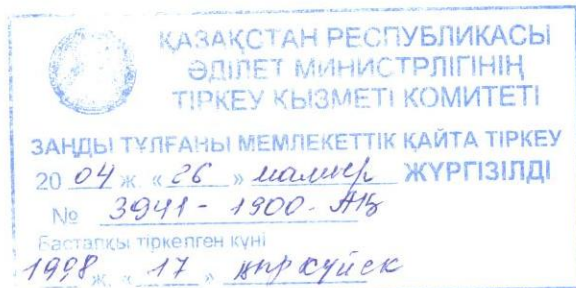 ҚАЗАҚСТАН РЕСПУБЛИКАСЫ
ӘДІЛЕТ МИНИСТРЛІГІНІҢ
ТІРКЕУ ҚЫЗМЕТІ КОМИТЕТІ
ЗАҢДЫ ТҰЛҒАНЫ МЕМЛЕКЕТТІК ҚАЙТА ТІРКЕУ
20 04 ж. « 26 » мамыр ЖҮРГІЗІЛДІ
№ 3941 - 1900 - АҚ
Бастапқы тіркелген күні
1998 ж. « 17 » қыркүйек